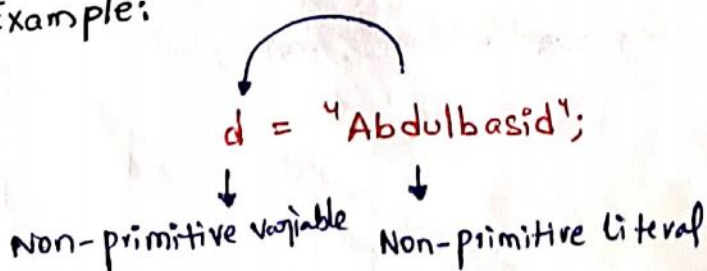 Example:
d = "Abdulbasid";
Non-primitive variable Non-primitive literal